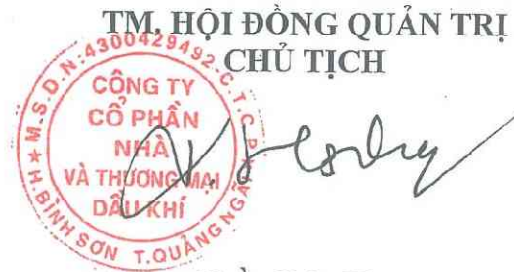 TM. HỘI ĐỒNG QUẢN TRỊ
CHỦ TỊCH
M.S.D.N:4300429492-C.T.C.P
CÔNG TY
CỔ PHẦN
NHÀ
VÀ THƯƠNG MẠI
DẦU KHÍ
H.BÌNH SƠN T.QUẢNG NGÃI